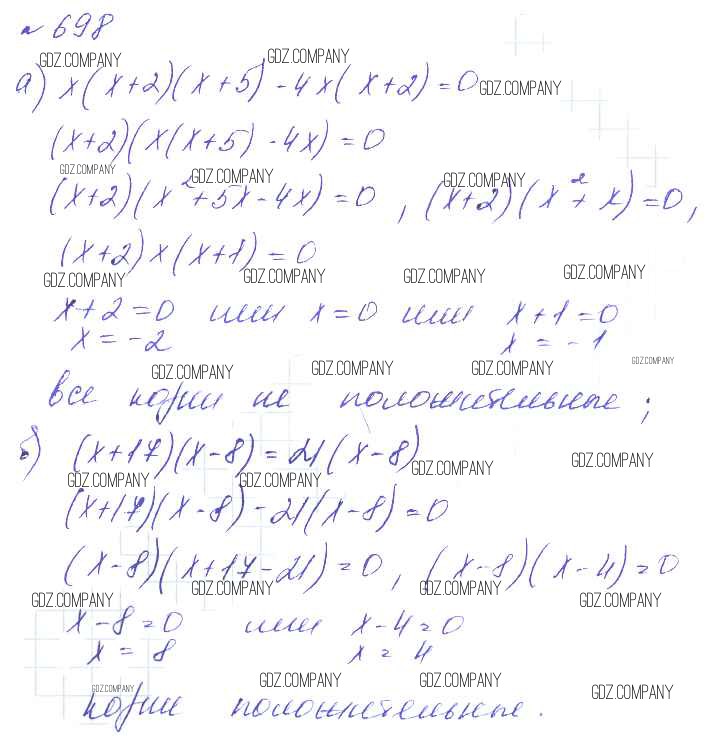 № 698
GDZ.COMPANY GDZ.COMPANY
а) x(x+2)(x+5) - 4x(x+2) = 0 GDZ.COMPANY
(x+2)(x(x+5) - 4x) = 0
GDZ.COMPANY GDZ.COMPANY GDZ.COMPANY
(x+2)(x²+5x-4x) = 0, (x+2)(x²+x) = 0,
(x+2)x(x+1) = 0
GDZ.COMPANY GDZ.COMPANY GDZ.COMPANY GDZ.COMPANY
x+2=0 или x=0 или x+1=0
x = -2 x = -1
GDZ.COMPANY GDZ.COMPANY GDZ.COMPANY GDZ.COMPANY
все корни не положительные;
б) (x+17)(x-8) = 21(x-8)
GDZ.COMPANY GDZ.COMPANY
GDZ.COMPANY GDZ.COMPANY
(x+17)(x-8) - 21(x-8) = 0
(x-8)(x+17-21) = 0, (x-8)(x-4) = 0
GDZ.COMPANY GDZ.COMPANY GDZ.COMPANY GDZ.COMPANY
x-8=0 или x-4=0
x = 8 x = 4
GDZ.COMPANY GDZ.COMPANY GDZ.COMPANY GDZ.COMPANY
корни положительные.